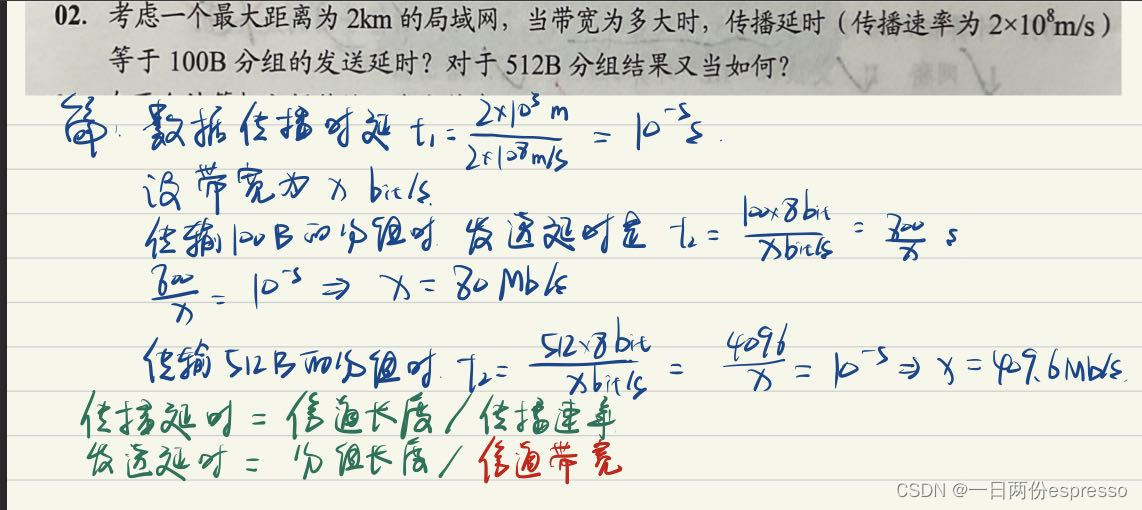 02. 考虑一个最大距离为 2km 的局域网，当带宽为多大时，传播延时（传播速率为 2×10⁸m/s）
等于 100B 分组的发送延时？对于 512B 分组结果又当如何？
解: 数据传播时延 t₁ = 2×10³ m / 2×10⁸ m/s = 10⁻⁵ s.
设带宽为 x bit/s
传输100B的分组时 发送延时是 t₂ = 100×8bit / x bit/s = 800/x s
800/x = 10⁻⁵ ⇒ x = 80 Mb/s
传输512B的分组时 t₂ = 512×8bit / x bit/s = 4096/x = 10⁻⁵ ⇒ x = 409.6 Mb/s.
传播延时 = 信道长度 / 传播速率
发送延时 = 分组长度 / 信道带宽
CSDN @一日两份espresso